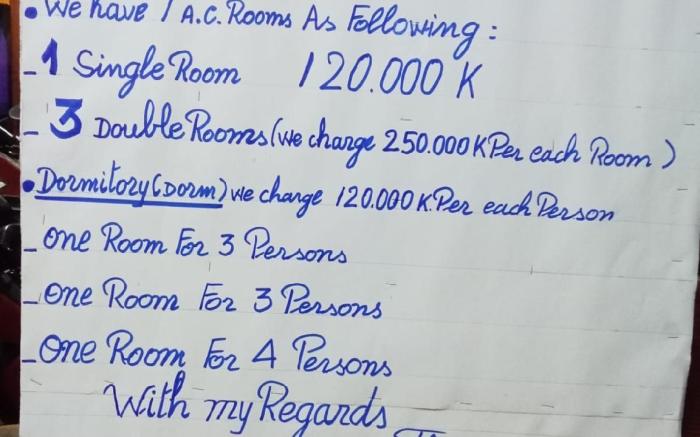 • We have 7 A.C. Rooms As Following :
- 1 Single Room 120.000 K
- 3 Double Rooms (we charge 250.000 K Per each Room )
• Dormitory (Dorm) we charge 120.000 K. Per each Person
- one Room For 3 Persons
- one Room For 3 Persons
- One Room For 4 Persons
With my Regards